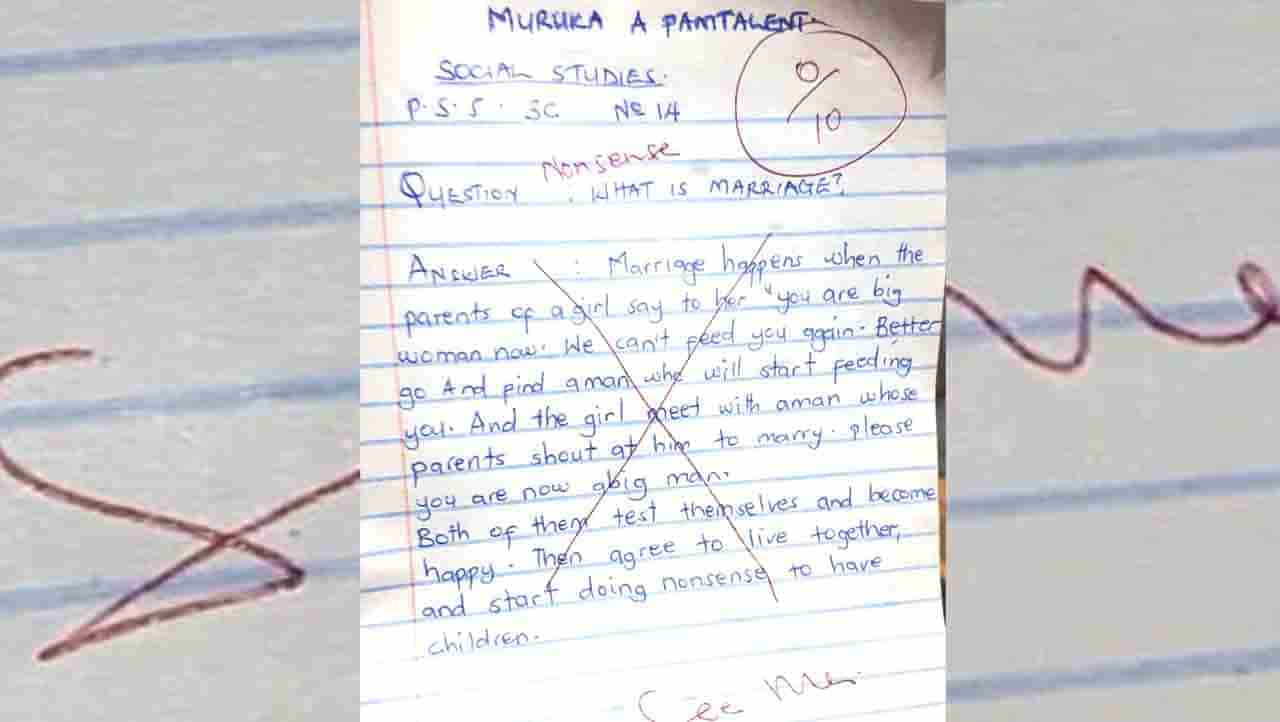 MURUKA A PAMTALENT
SOCIAL STUDIES.
P.S.S. 3C No 14
0/10
Nonsense
QUESTION : WHAT IS MARRIAGE?
ANSWER : Marriage happens when the
parents of a girl say to her "you are big
woman now. We can't feed you again. Better
go And find aman who will start feeding
you. And the girl meet with aman whose
parents shout at him to marry. please
you are now abig man.
Both of them test themselves and become
happy. Then agree to live together,
and start doing nonsense to have
children.
See Me.